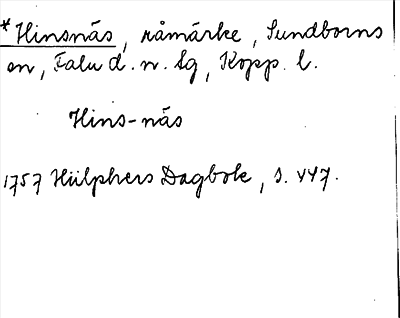 *Hinsnäs, råmärke, Sundborns
sn, Falu d. n. lg, Kopp. l.
Hins-näs
1757 Hülphers Dagbok, s. 447.